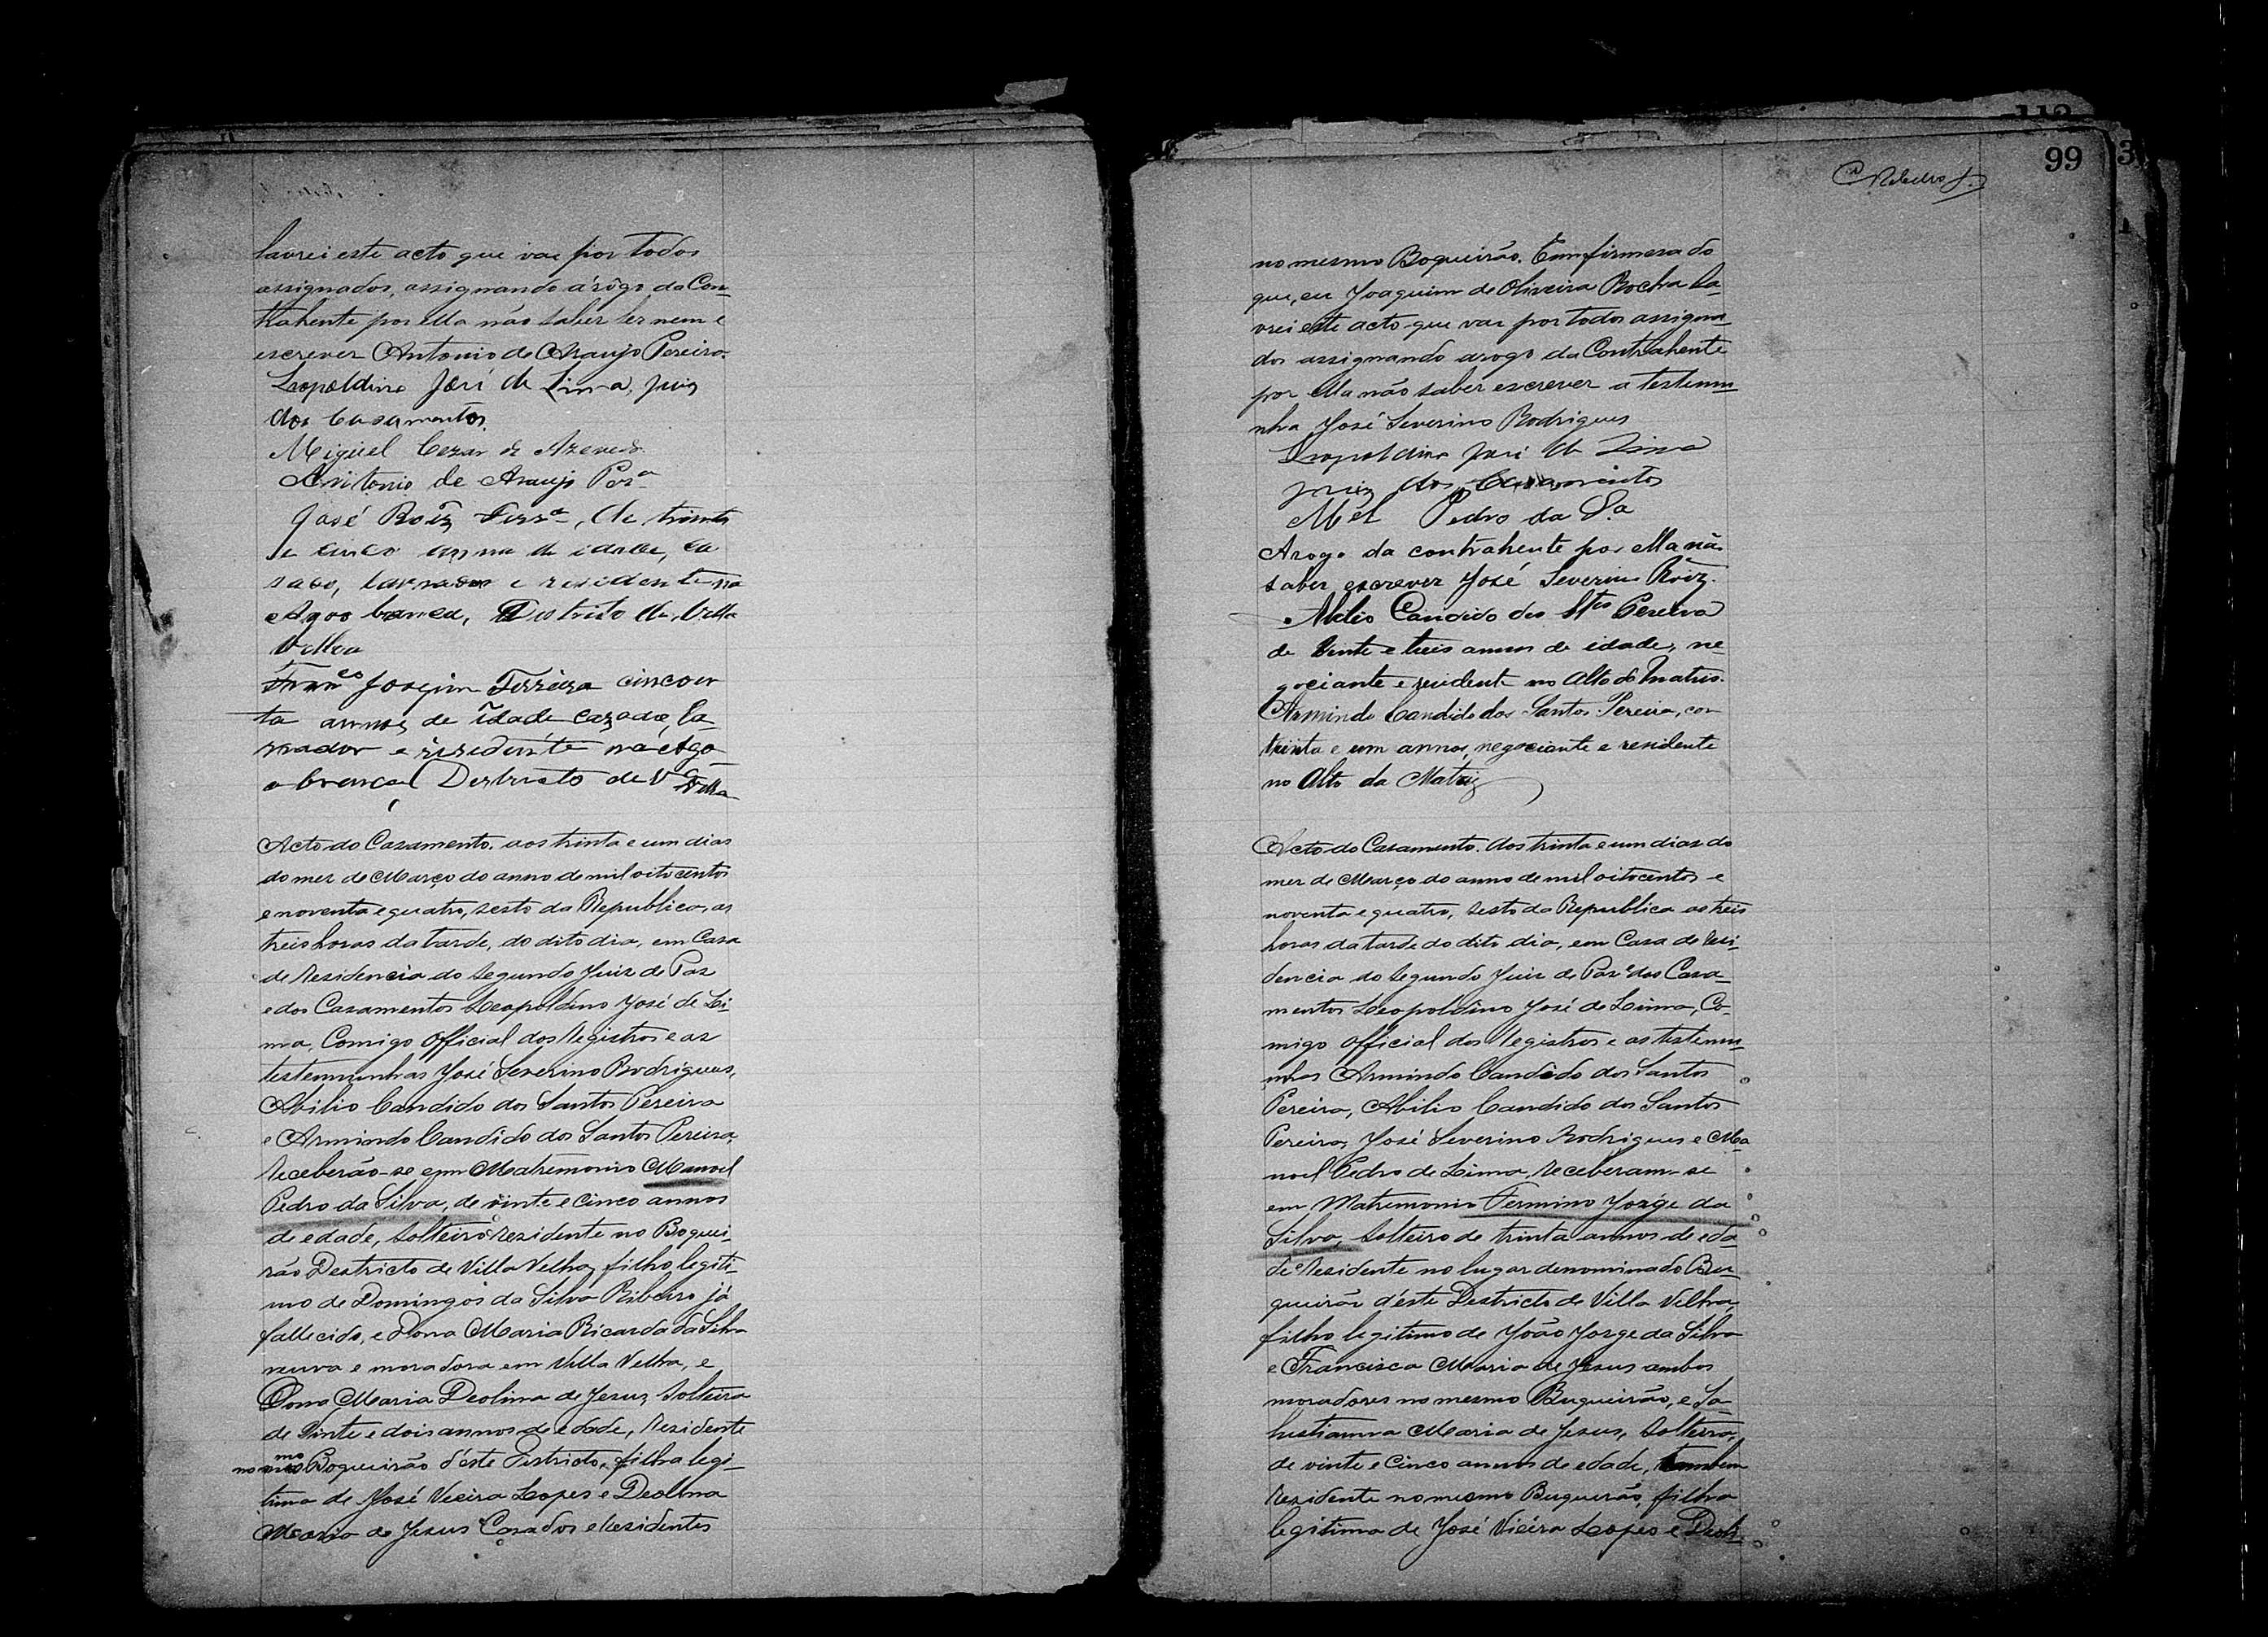 lavrei este acto que vae por todos
assignados, assignando á rôgo da Con-
trahente por ella não saber ler nem e
escrever Antonio de Araujo Pereira.
Leopoldino José de Lima, juiz
dos Casamentos.
Miguel Cezar de Azevedo
Antonio de Araujo Per.ª
José Roiz Ferr.ª, de trinta
e cinco annos de idade, ca
sado, lavrador e residente na
Agoa branca, Destrito de Villa
Velha
Fran.co Joaqim Ferreira cincoen
ta annos de idade cazado, la-
vrador e rezidente na Ago
a branca Destrito de V.ª Velha
Acto do Casamento. aos trinta e um dias
do mez de Março do anno de mil oitocentos
e noventa e quatro, sesto da Republica, as
treis horas da tarde, do dito dia, em Casa
de residencia do segundo Juiz de Paz
e dos Casamentos Leopoldino José de Li-
ma, Comigo official dos registros e as
testemunhas José Severino Rodrigues,
Abilio Candido dos Santos Pereira
e Armindo Candido dos Santos Pereira,
receberão-se em Matremonio Manoel
Pedro da Silva, de vinte e cinco annos
de edade, solteiro rezidente no Boquei-
rão Destricto de Villa Velha, filho legiti-
mo de Domingos da Silva Ribeiro já
fallecido, e Dona Maria Ricarda da Silva
viuva e moradora em Villa Velha, e
Dona Maria Deolina de Jesus, solteira
de vinte e dois annos de edade, rezidente
no mmo Boqueirão d'éste Districto, filha legi-
tima de José Vieira Lopes e Deolina
Maria de Jesus Casados e residentes
99
no mesmo Boqueirão. Em firmesa do
que, eu Joaquim de Oliveira Rocha la-
vrei este acto que vae por todos assigna-
dos assignando arogo da Contrahente
por ella não saber escrever a testemu-
nha José Severino Rodrigues
Leopoldino José de Lima
juiz dos Casamentos
Mel Pedro da S.ª
Arogo da contrahente por ella não
saber escrever José Severino Roiz.
Abilio Candido dos Stos Pereira
de vinte e treis annos de idade, ne-
gociante e residente no Alto da Matris.
Armindo Candido dos Santos Pereira, con
trinta e um annos, negociante e residente
no Alto da Matriz
Acto do Casamento. Aos trinta e um dias do
mez de Março do anno de mil oitocentos e
noventa e quatro, sesto da Republica as treis
horas da tarde do dito dia, em Casa de resi-
dencia do segundo Juiz de Paz e dos Casa-
mentos Leopoldino José de Lima, Co-
migo official dos registros e as testemu-
nhas Armindo Candido dos Santos
Pereira, Abilio Candido dos Santos
Pereira, José Severino Rodrigues e Ma
noel Pedro de Lima, receberam-se
em Matremonio Fermino Jorge da
Silva, solteiro de trinta annos de eda-
de residente no lugar denominado Bu-
queirão d'éste Destricto de Villa Velha,
filho legitimo de João Jorge da Silva
e Francisca Maria de Jesus ambos
moradores no mesmo Buqueirão, e Sa-
bustianna Maria de Jesus, solteira,
de vinte e cinco annos de edade, tambem
rezidente no mesmo Buqueirão, filha
legitima de José Vieira Lopes e Deoli-